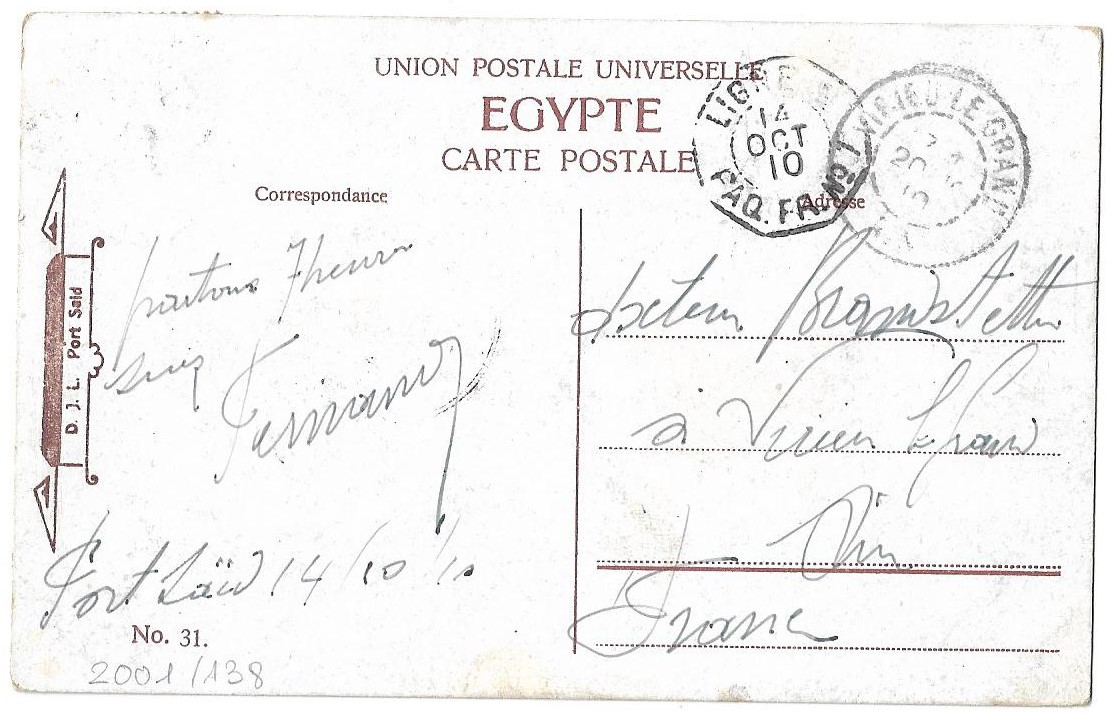 UNION POSTALE UNIVERSELLE
EGYPTE
CARTE POSTALE
Correspondance
Adresse
LIGNE N
14
OCT
10
PAQ. FR. No 1
VIRIEU-LE-GRAND
20
D. J. L. Port Said
partons 7 heures
Suez
Fernand
Port Saïd 14/10/10
No. 31.
2001/138
docteur Brandstetter
à Virieu le Grand
Ain
France